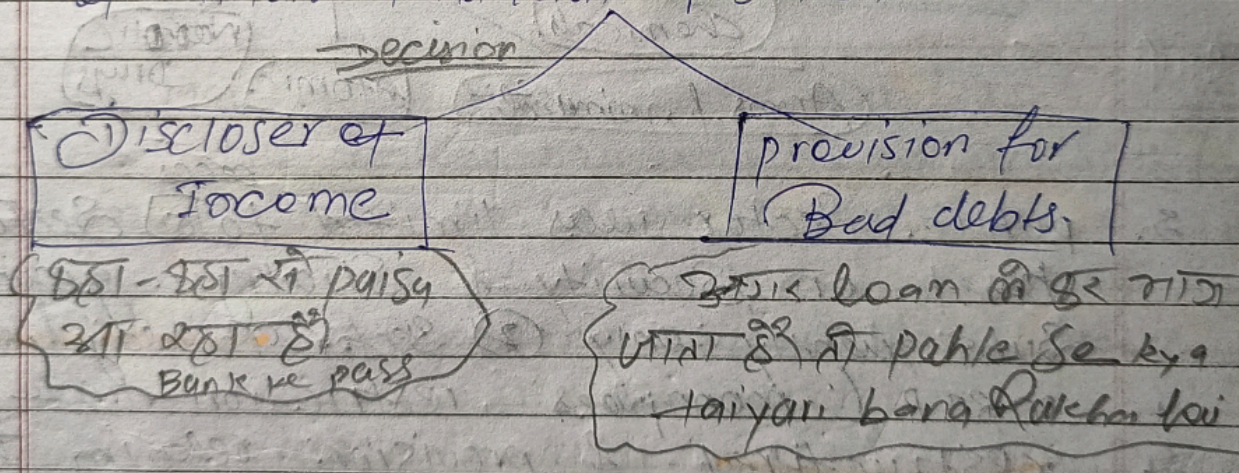 Decision
Discloser of
Iocome
provision for
Bad debts.
कहा-कहा से paisa
आ रहा है
Bank ke pass
अगर loan लेकर भाग
जाता है तो pahle se kya
taiyari bana Rakha hai